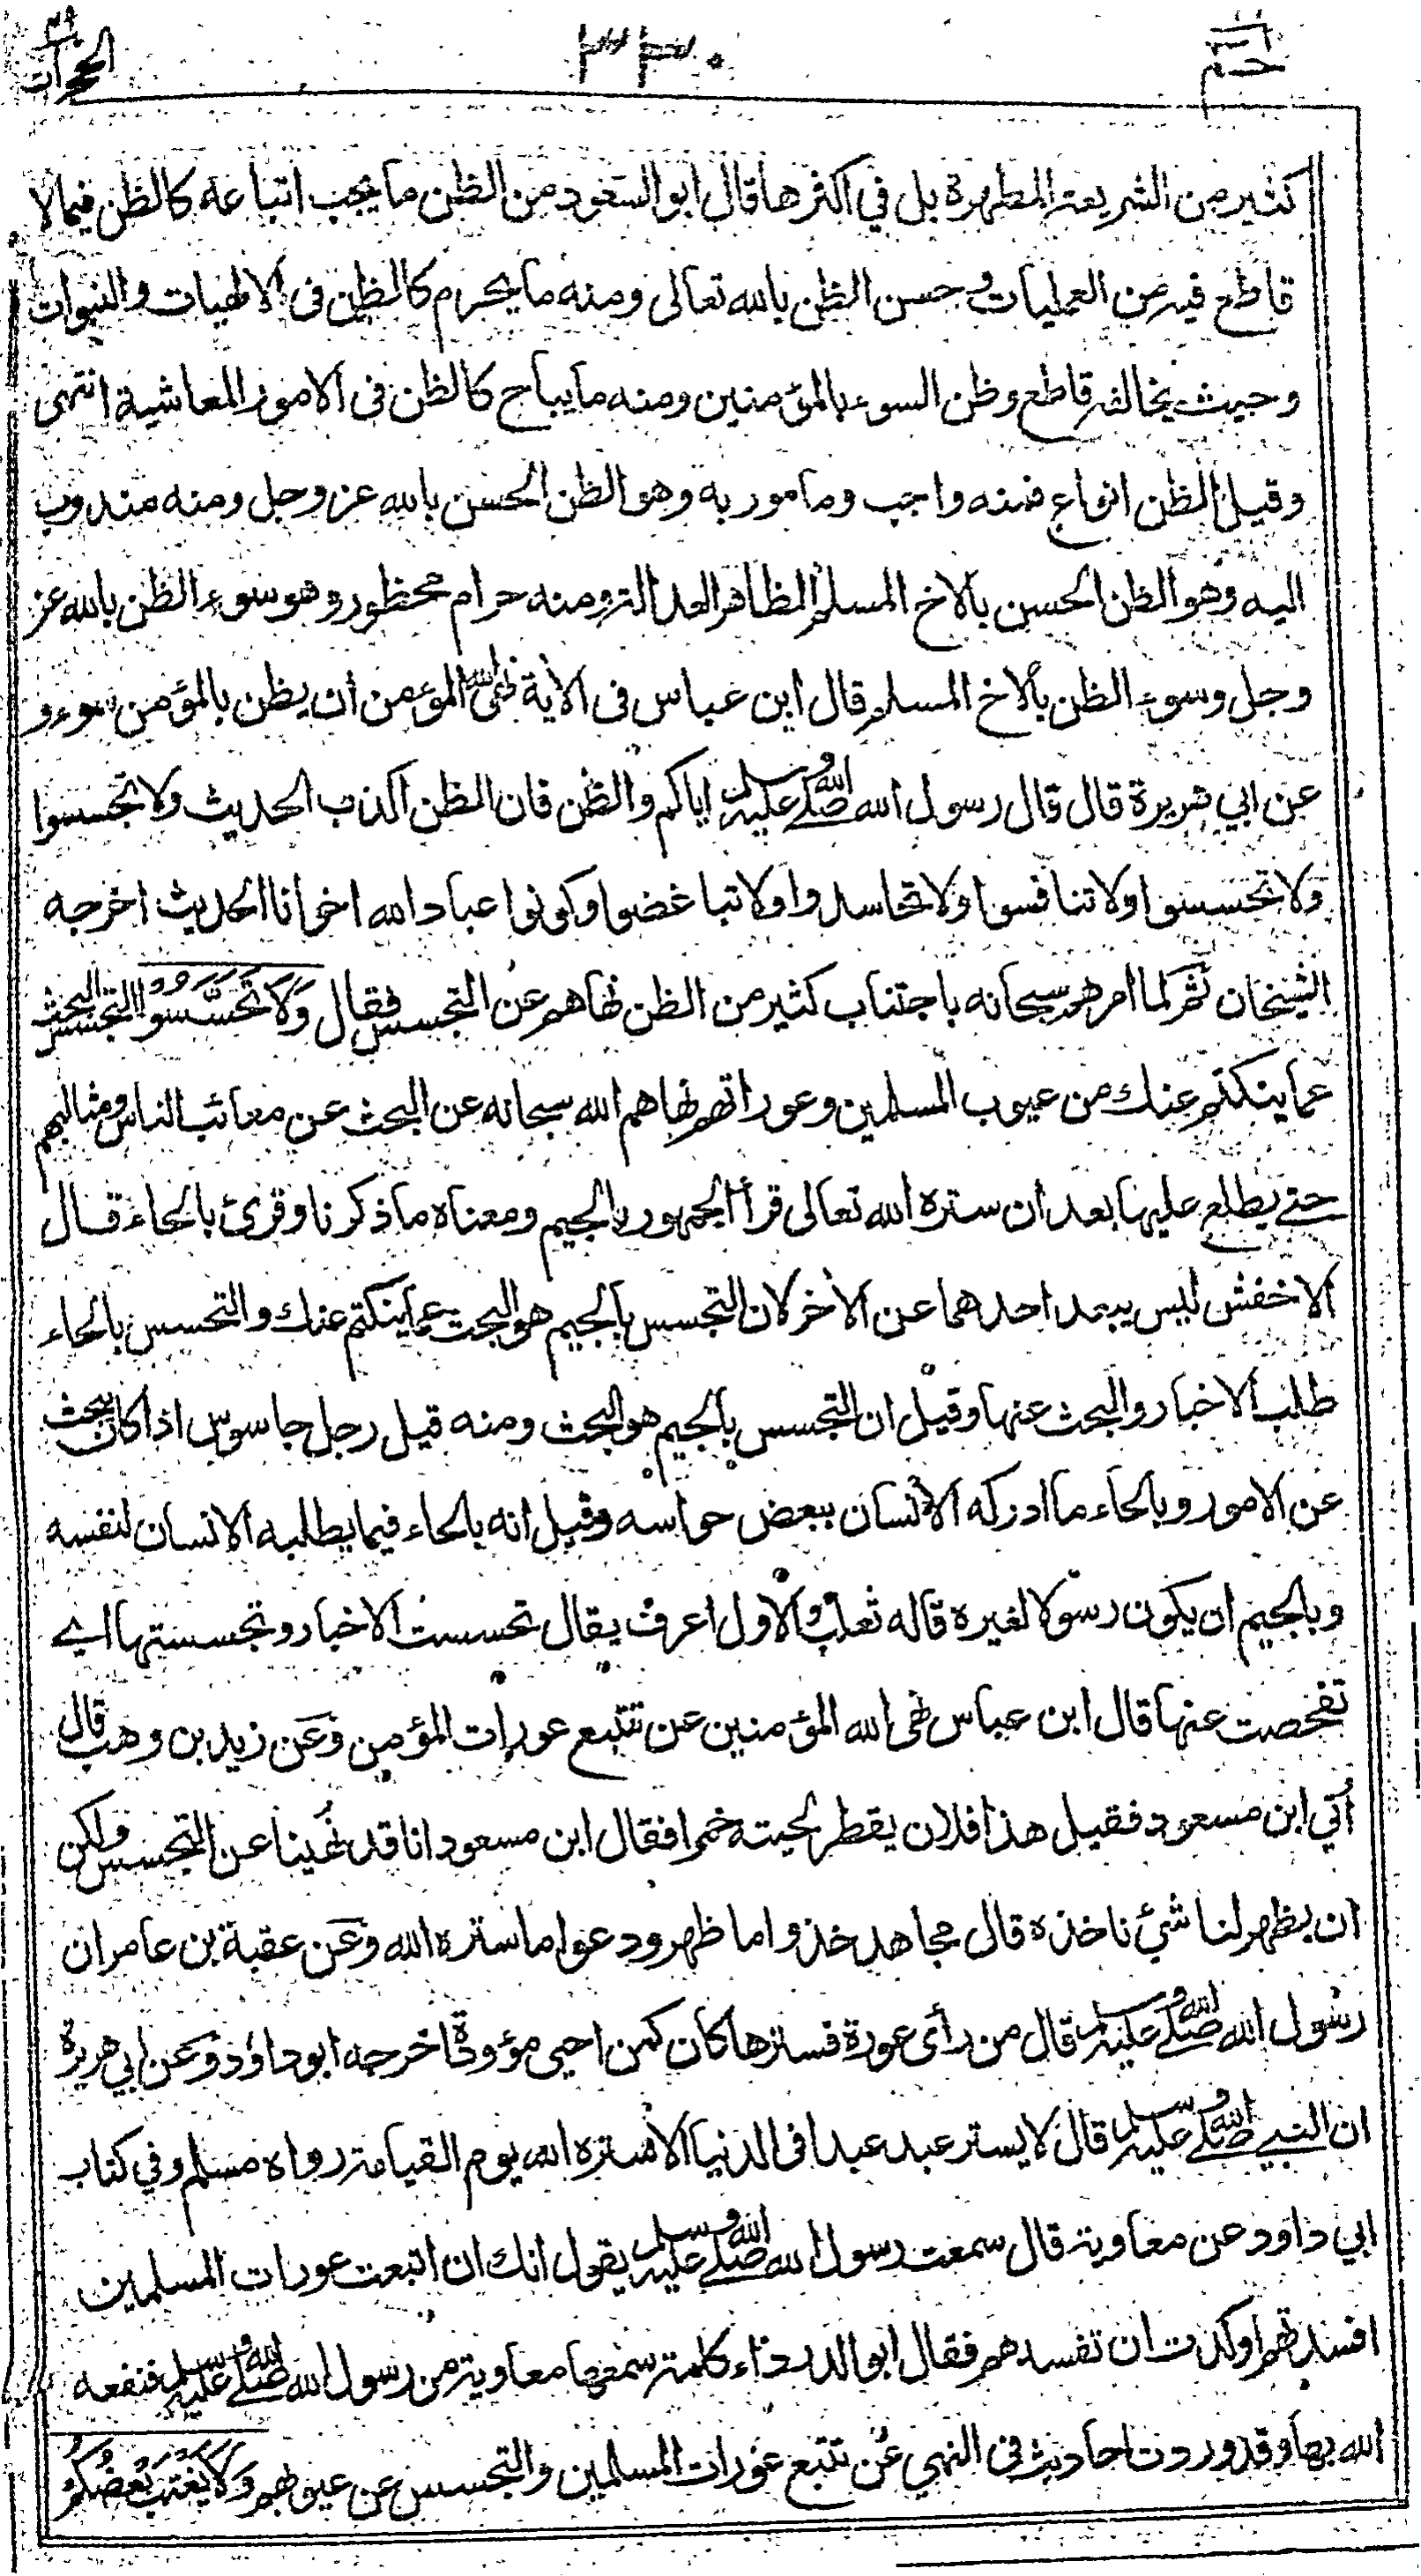 حم ٢٦ ٣٣٠ الحجرات ٤٩
كثير من الشريعة المطهرة بل في اكثرها قال ابو السعود من الظن ما يجب اتباعه كالظن فيما لا
قاطع فيه من العمليات وحسن الظن بالله تعالى ومنه ما يحرم كالظن فى الالهيات والنبوات
وحيث يخالفه قاطع وظن السوء بالمؤمنين ومنه ما يباح كالظن فى الامور المعاشية انتهى
وقيل الظن انواع فمنه واجب ومامور به وهو الظن الحسن بالله عز وجل ومنه مندوب
اليه وهو الظن الحسن بالاخ المسلم الظاهر العدالة ومنه حرام محظور وهو سوء الظن بالله عز
وجل وسوء الظن بالاخ المسلم قال ابن عباس فى الآية نهى الله المؤمن ان يظن بالمؤمن سوء و
عن ابي هريرة قال قال رسول الله صلى الله عليه وسلم اياكم والظن فان الظن اكذب الحديث ولا تجسسوا
ولا تحسسوا ولا تنافسوا ولا تحاسدوا ولا تباغضوا وكونوا عباد الله اخوانا الحديث اخرجه
الشيخان ثم لما امرهم سبحانه باجتناب كثير من الظن نهاهم عن التجسس فقال وَلَا تَجَسَّسُوْا التجسس البحث
عما ينكتم عنك من عيوب المسلمين وعوراتهم نهاهم الله سبحانه عن البحث عن معائب الناس ومثالبهم
حتے يطلع عليها بعد ان ستره الله تعالى قرأ الجمهور بالجيم ومعناه ما ذكرنا وقرئ بالحاء قال
الاخفش ليس يبعد احدهما عن الآخر لان التجسس بالجيم هو البحث عما ينكتم عنك والتحسس بالحاء
طلب الاخبار والبحث عنها وقيل ان التجسس بالجيم هو البحث ومنه قيل رجل جاسوس اذا كان يبحث
عن الامور وبالحاء ما ادركه الانسان ببعض حواسه وقيل انه بالحاء فيما يطلبه الانسان لنفسه
وبالجيم ان يكون رسولا لغيره قاله ثعلب والاول اعرف يقال تحسست الاخبار وتجسستها اے
تفحصت عنها قال ابن عباس نهى الله المؤمنين عن تتبع عورات المؤمن وعن زيد بن وهب قال
أتي ابن مسعود فقيل هذا فلان يقطر لحيته خمرا فقال ابن مسعود انا قد نُهينا عن التجسس ولكن
ان يظهر لنا شئ ناخذه قال مجاهد خذوا ما ظهر ودعوا ما ستره الله وعن عقبة بن عامر ان
رسول الله صلى الله عليه وسلم قال من رأى عورة فسترها كان كمن احيى مؤودة اخرجه ابو داؤد وعن ابي هريرة
ان النبي صلى الله عليه وسلم قال لا يستر عبد عبدا فى الدنيا الا ستره الله يوم القيامة رواه مسلم وفي كتاب
ابي داود عن معاوية قال سمعت رسول الله صلى الله عليه وسلم يقول انك ان اتبعت عورات المسلمين
افسدتهم او كدت ان تفسدهم فقال ابو الدرداء كلمة سمعها معاوية من رسول الله صلى الله عليه وسلم فنفعه
الله بها وقد وردت احاديث فى النهي عن تتبع عورات المسلمين والتجسس عن عيوبهم وَلَا يَغْتَبْ بَعْضُكُمْ